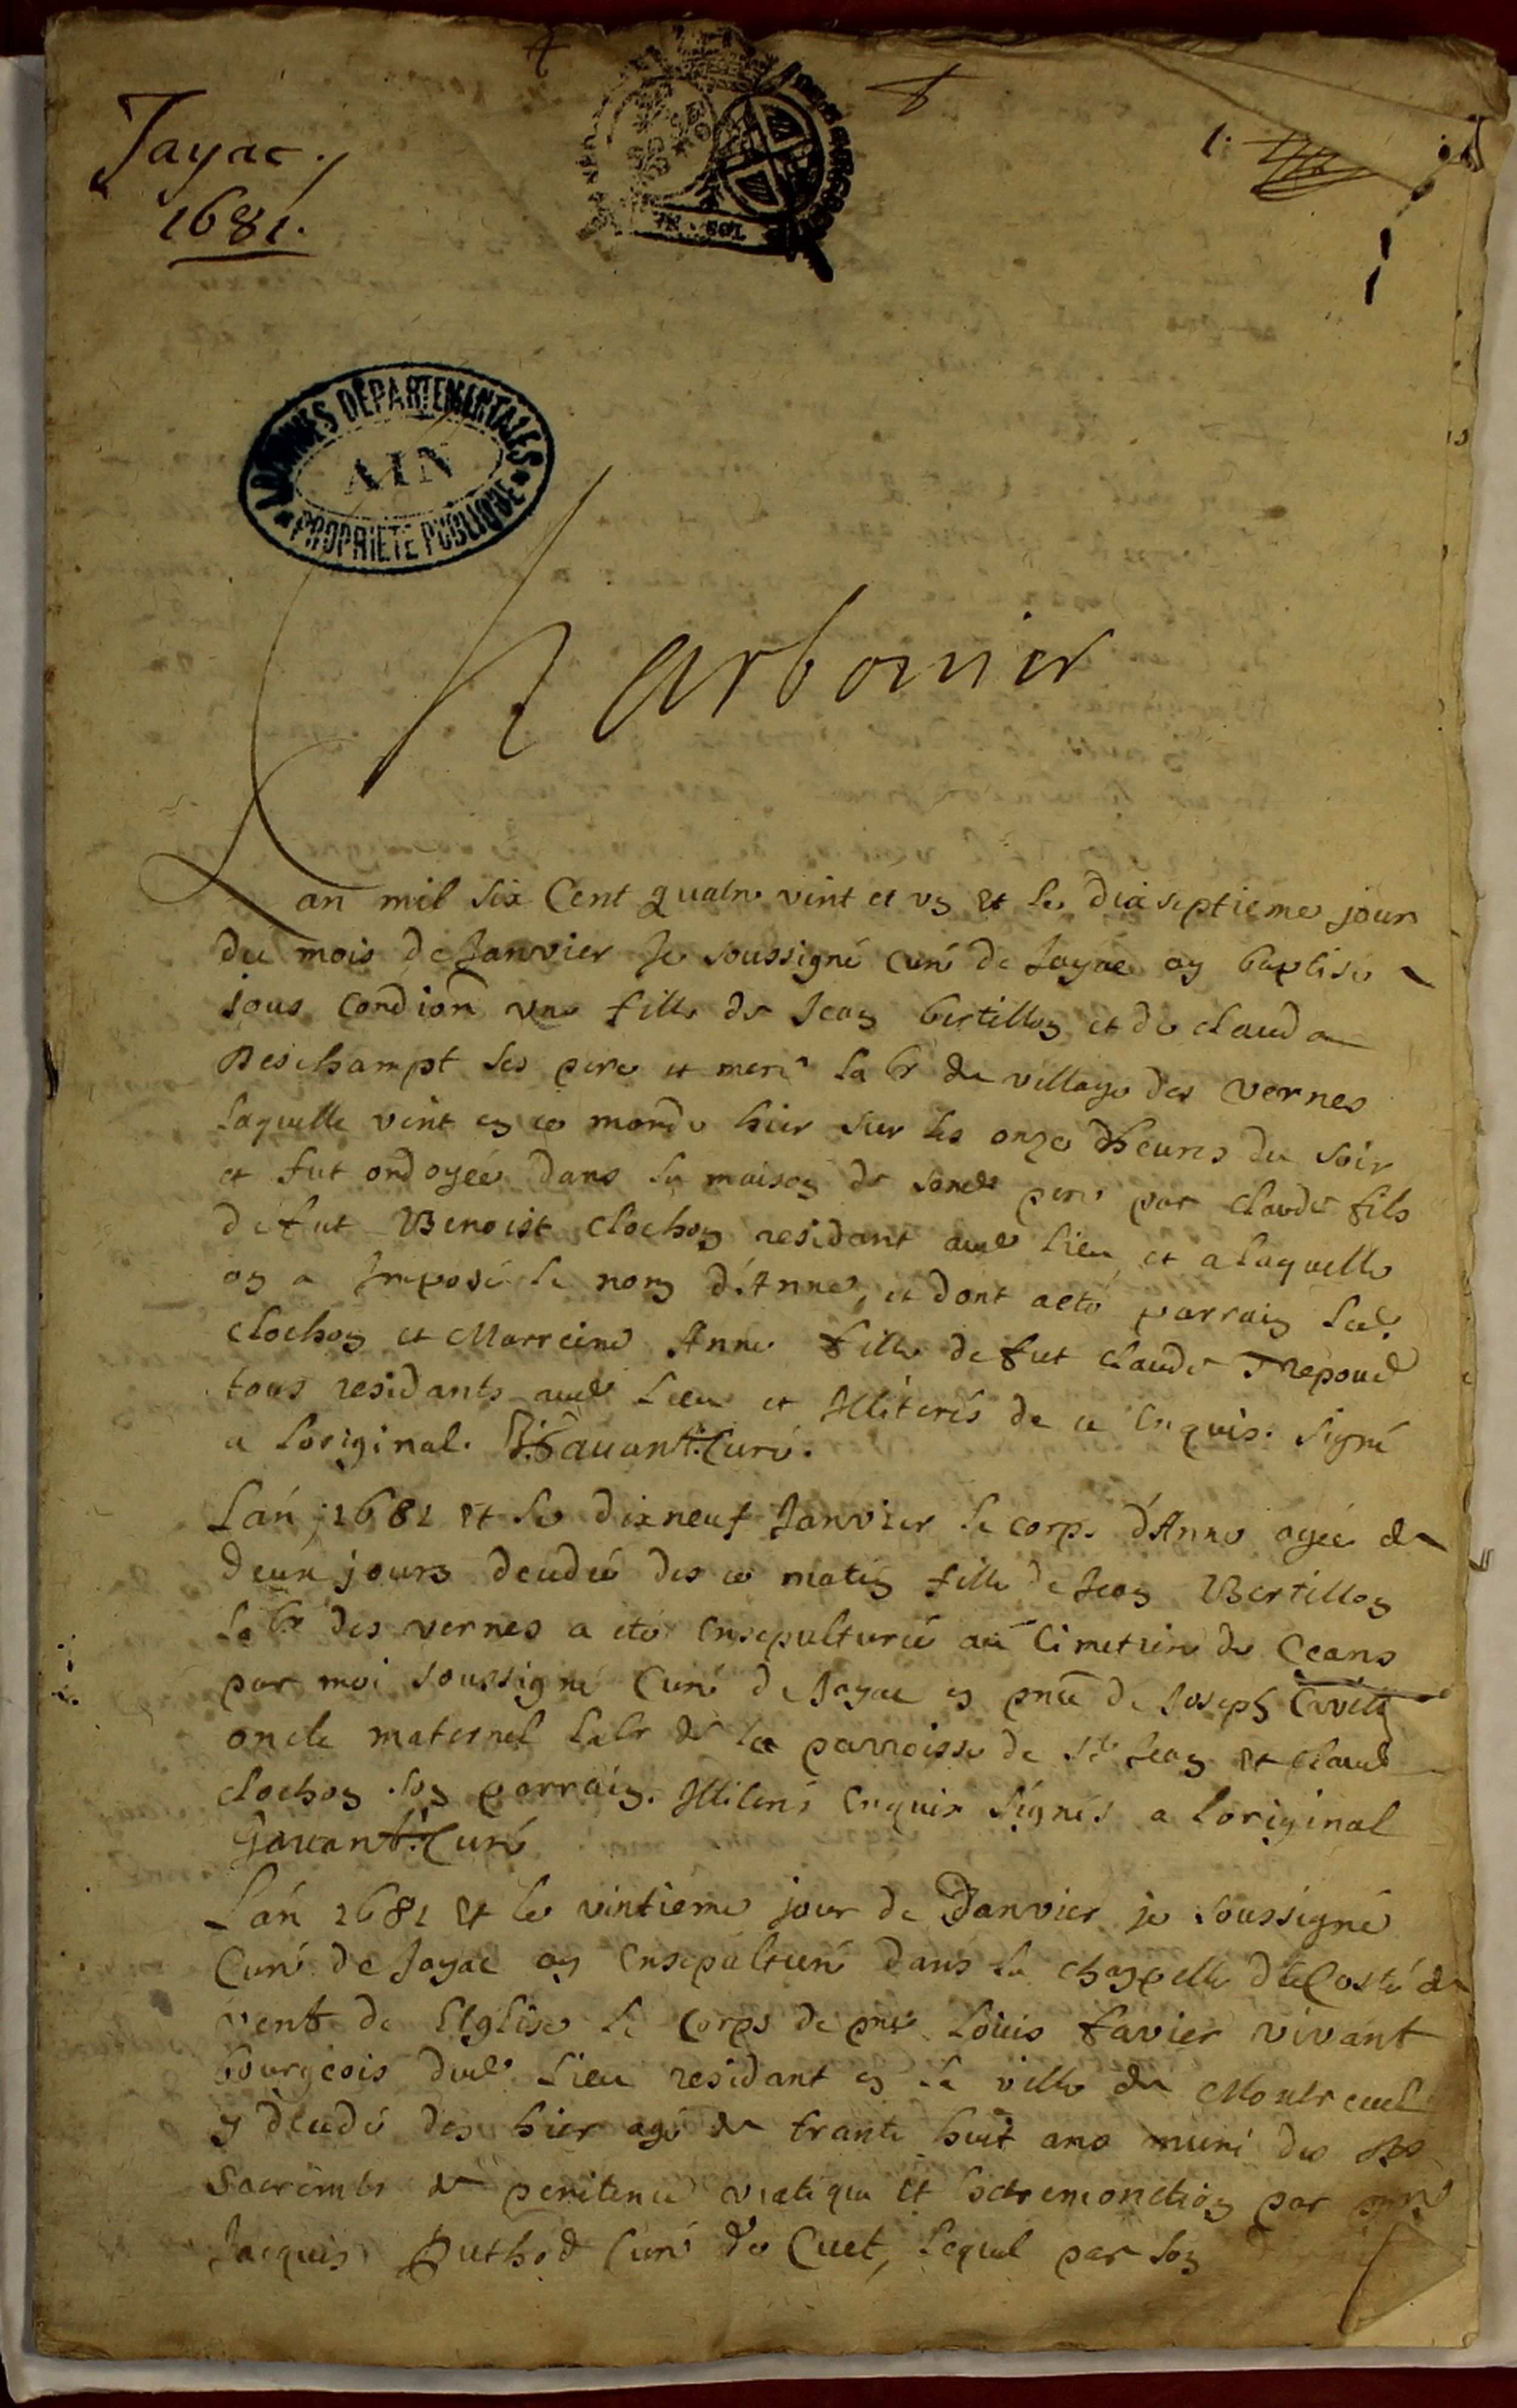 Jayac.
1681.
1.
ARCHIVES DEPARTEMENTALES
AIN
PROPRIETE PUBLIQUE
Charbonier
Lan mil six Cent quatre vint et un et le dixseptieme jour
du mois de Janvier Je soussigné curé de Jayac ay baptisé
sous condion une fille de Jean bertillon et de clauda
Deschampt ses pere et mere labr du village des vernes
laquelle vint en ce monde hier sur les onze dheures du soir
et fut ondoyée dans la maison de sond pere par claude fils
de fut Benoist clochon residant aud lieu et a laquelle
on a Imposé le nom d'Anne, et dont a eté parrain led.
clochon et Marreine Anne fille de fut claude Trepoud
tous residants aud lieu et Illiterés de ce enquis. signé
a loriginal. Gavant. Curé.
Lan 1681 et le dixneuf Janvier le corps d'Anne agée de
deux jours decedée des ce matin fille de Jean Bertillon
labr des vernes a eté ensepulturée au Cimetiere de Ceans
par moi soussigné Curé de Jayac en pnce de Joseph
oncle maternel labr de la parroisse de St Jean et claude
clochon son parrain. Illiterés enquis signés a loriginal
Gavant. Curé
Lan 1681 et le vintieme jour de Janvier je soussigné
Curé de Jayac ay ensepulturé dans la chappelle du Costé de
vent de Eglise le corps de Louis favier vivant
bourgeois dud lieu residant en la ville de
y decedé des hier agé de trante huit ans muni des Sts
Sacremts de penitence viatique et extremonction par
Jacques Puthod Curé de Cuet, lequel par son